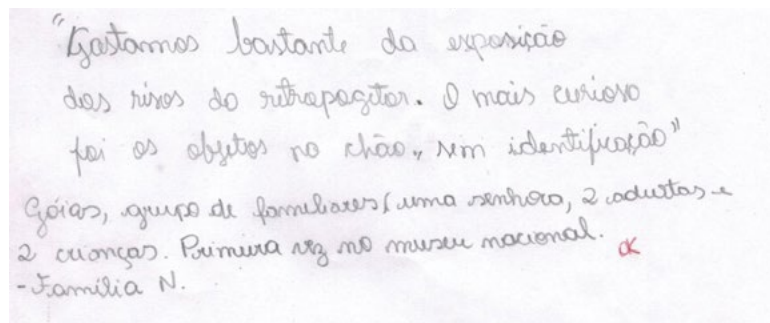 "Gostamos bastante da exposição
dos risos do retropogitor. O mais curioso
foi os objetos no chão, sem identificação"
Góias, grupo de familiares (uma senhora, 2 adultas e
2 crianças. Primeira vez no museu nacional.
- Família N.